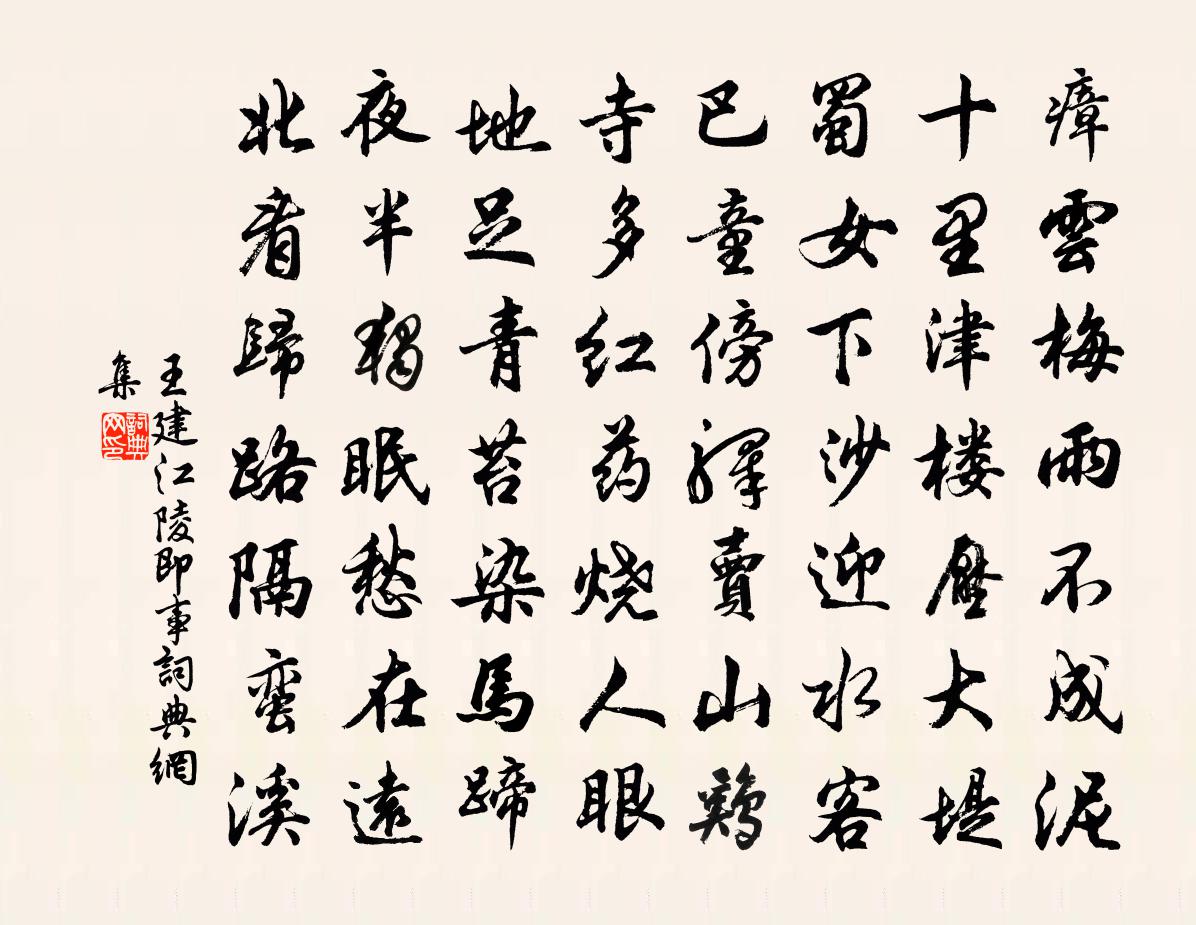 瘴雲梅雨不成泥
十里津楼壓大堤
蜀女下沙迎水客
巴童傍驛賣山鷄
寺多红药烧人眼
地足青苔染馬蹄
夜半独眠愁在遠
北看歸路隔蛮溪
王建江陵即事詞典網
集
詞典网印